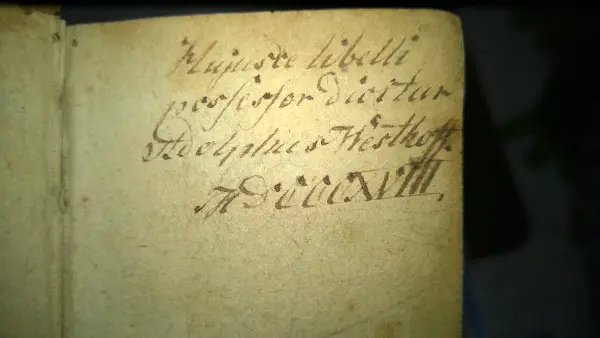 Hujusce libelli
possessor dicitur
Adolphus Westhoff.
MDCCCXVIII.